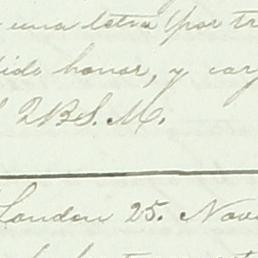 una letra por tr
ido honor, y car
QBS.M.
London 25. Nov